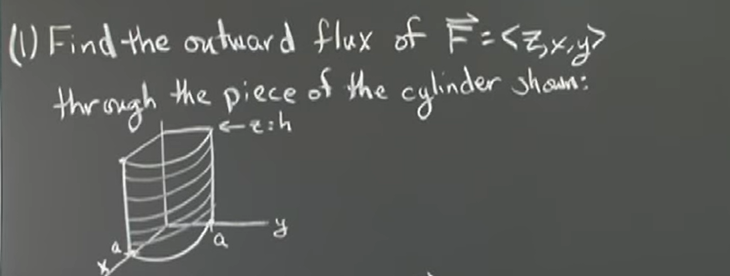 (1) Find the outward flux of F⃗ = <z,x,y>
through the piece of the cylinder shown:
←z=h
a
a
y
x